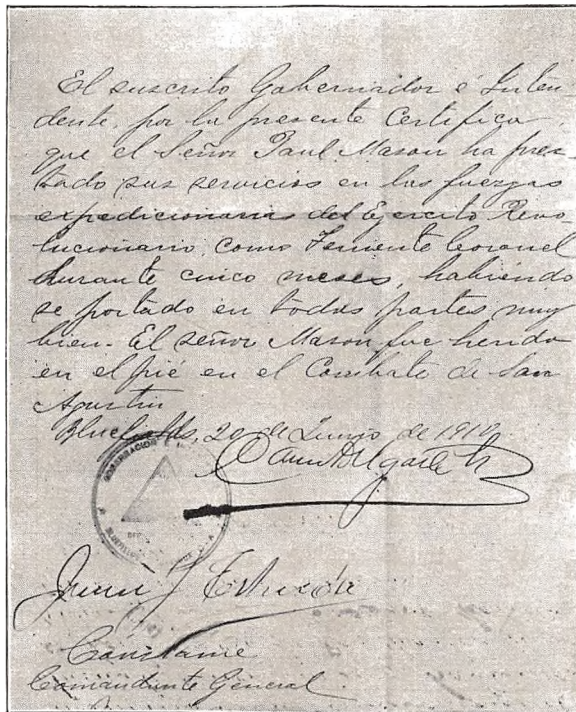 El suscrito Gobernador é Inten
dente, por la presente Certifica,
que el Señor Paul Mason ha pres-
tado sus servicios en las fuerzas
expedicionarias del Ejercito Revo-
lucionario, como Teniente Coronel
durante cinco meses, habiendo
se portado en todas partes muy
bien. El señor Mason fue herido
en el pié en el Combate de San
Agustin
Bluefields, 20 de Junio de 1910.
Juan J Estrada
Cónstame
Comandante General